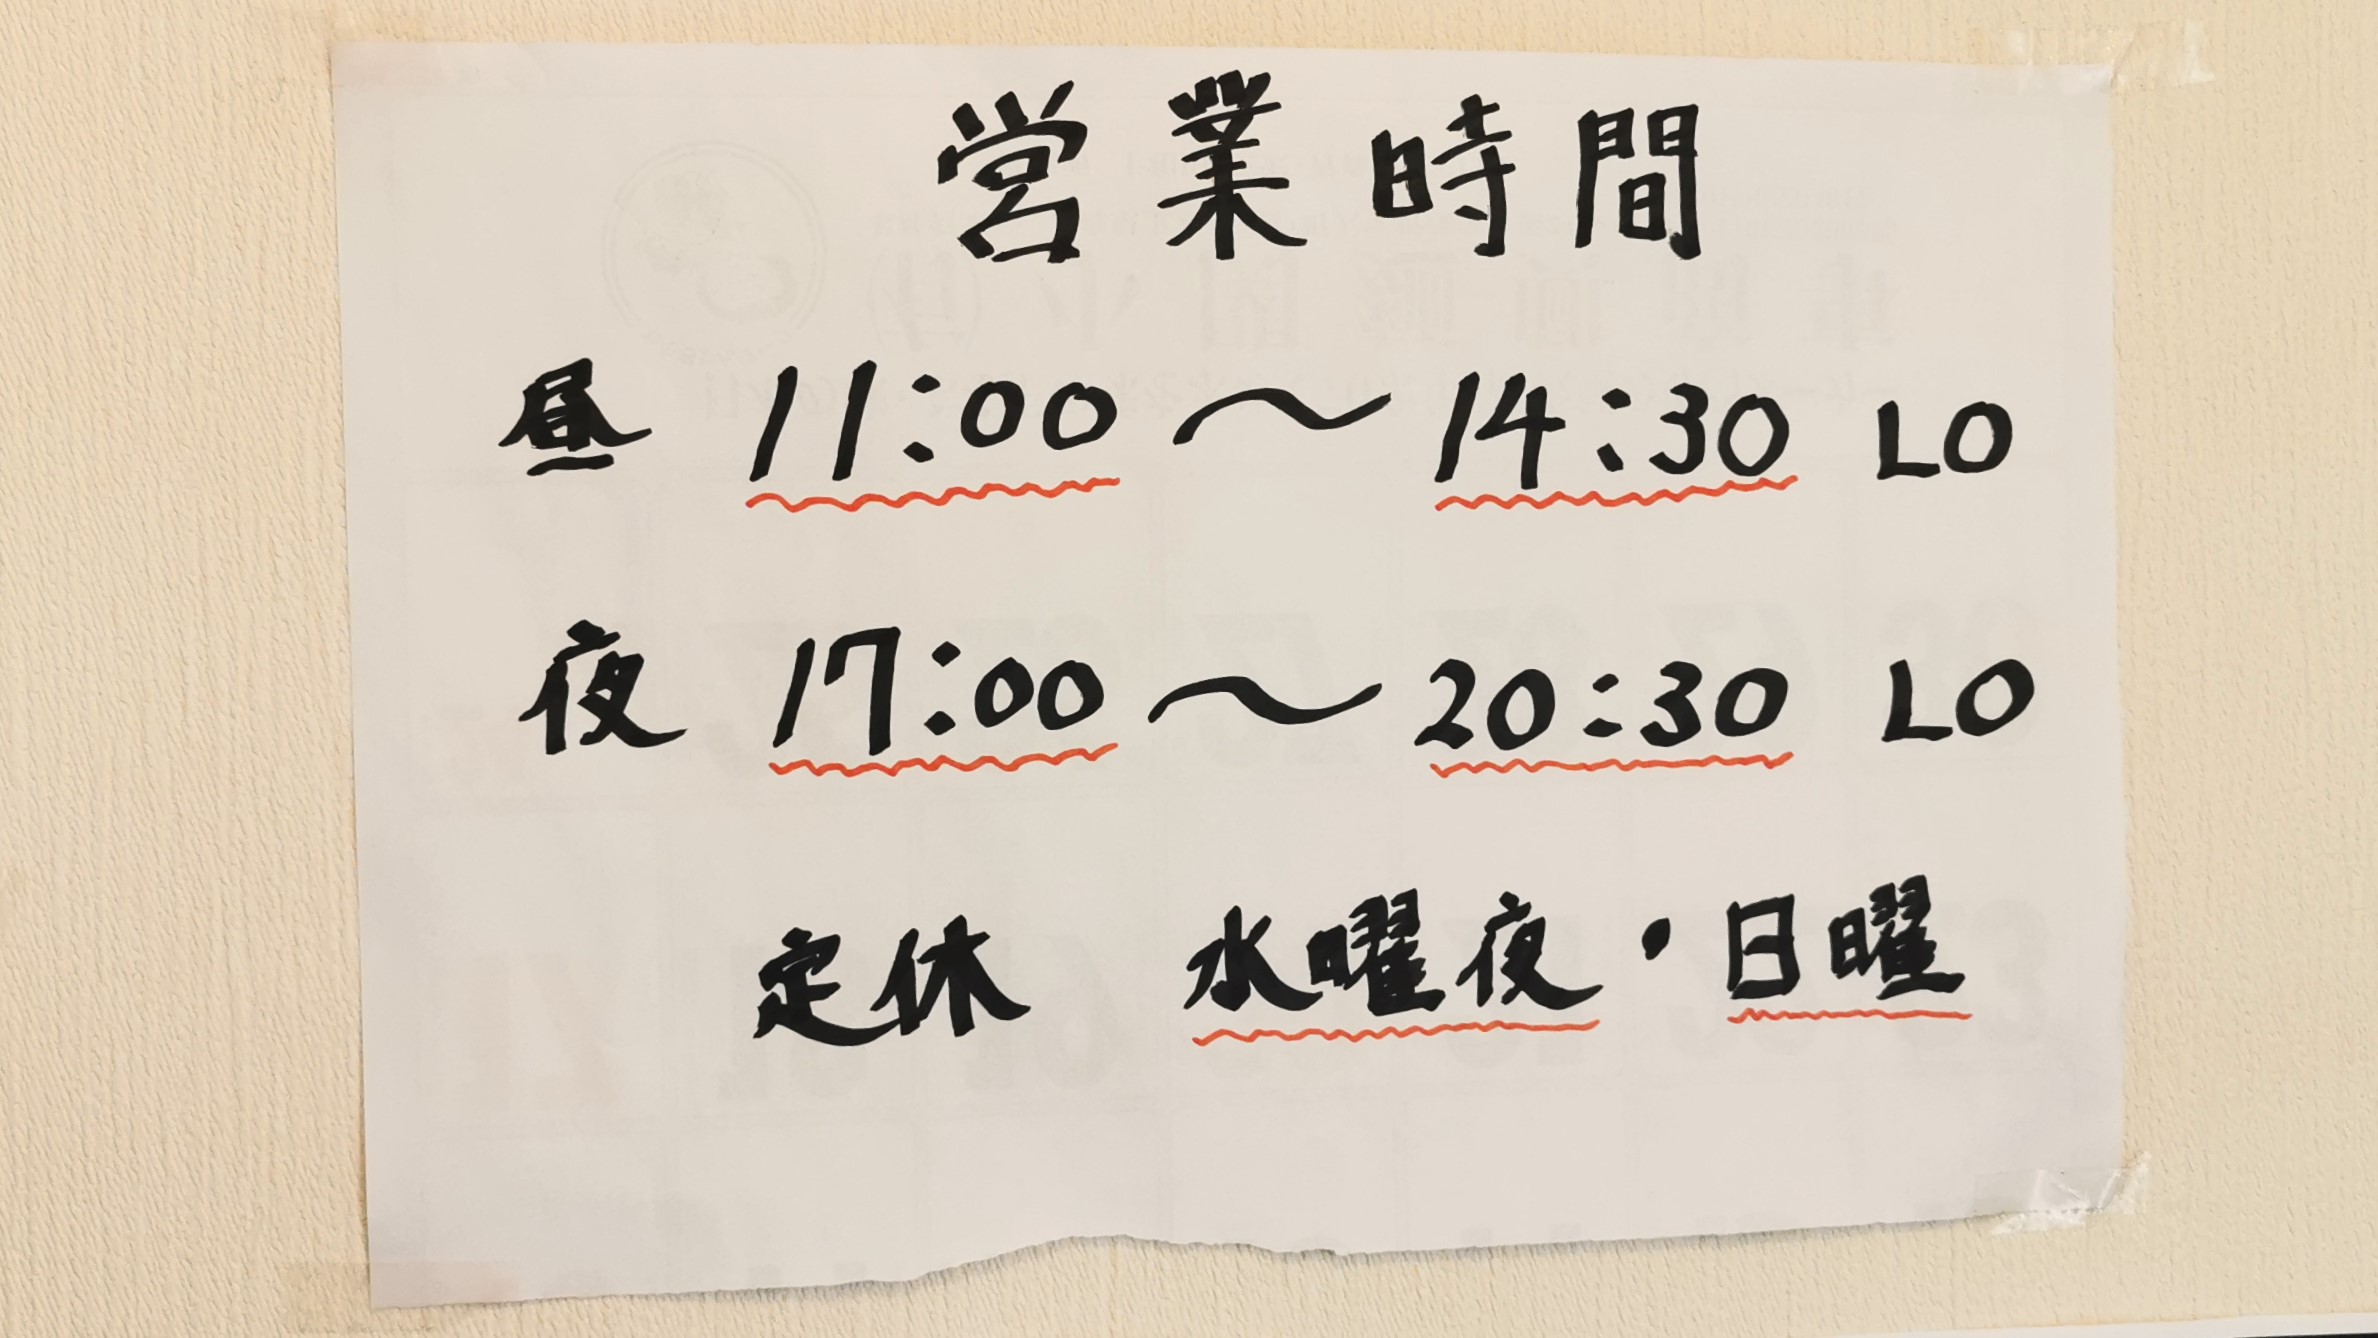 営業時間
昼 11:00 ～ 14:30 LO
夜 17:00 ～ 20:30 LO
定休 水曜夜・日曜